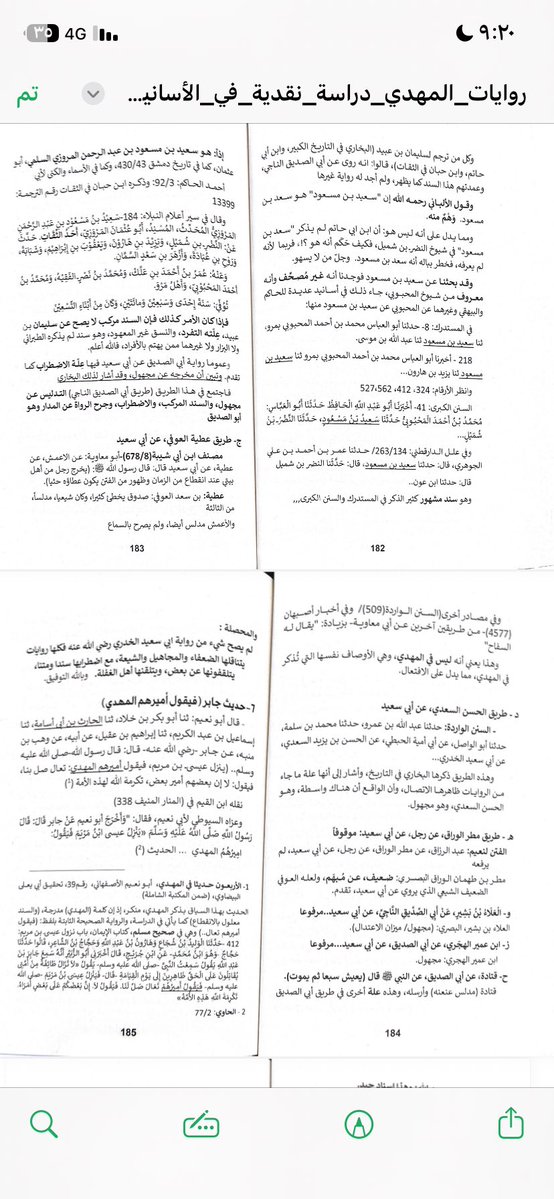 ٩:٢٠
4G ٣٥
روايات_المهدي_دراسة_نقدية_في_الأساني...
تم
وكل من ترجم لسليمان بن عبيد (البخاري في التاريخ الكبير، وابن أبي
حاتم، وابن حبان في الثقات)، قالوا: انه روى عن أبي الصديق الناجي،
وعمدتهم هذا السند كما يظهر، ولم أجد له رواية غيرها
وقول الألباني رحمه الله إن "سعيد بن مسعود" هو سعد بن
مسعود. وَهَمٌ منه.
ومما يدل على أنه ليس هو: أن ابن ابي حاتم لم يذكر "سعد بن
مسعود" في شيوخ النضر بن شميل، فكيف حكم أنه هو ؟!، فربما لأنه
لم يعرفه، فخطر بباله أنه سعد بن مسعود. وجلّ من لا يسهو.
وقد بحثنا عن سعيد بن مسعود فوجدنا أنه غير مُصحّف وأنه
معروف من شيوخ المحبوبي، جاء ذلك في أسانيد عديدة للحاكم
والبيهقي وغيرهما عن المحبوبي عن سعيد بن مسعود منها:
في المستدرك: 8- حدثنا أبو العباس محمد بن أحمد المحبوبي بمرو،
ثنا سعيد بن مسعود ثنا عبد الله بن موسى.
218 - أخبرنا أبو العباس محمد بن أحمد المحبوبي بمرو ثنا سعيد بن
مسعود ثنا يزيد بن هارون...
وانظر الأرقام: 324، 412، 562،527
السنن الكبرى: 41- أَخْبَرَنَا أَبُو عَبْدِ اللَّهِ الْحَافِظُ حَدَّثَنَا أَبُو الْعَبَّاسِ:
مُحَمَّدُ بْنُ أَحْمَدَ الْمَحْبُوبِيُّ حَدَّثَنَا سَعِيدُ بْنُ مَسْعُودٍ، حَدَّثَنَا النَّضْرُ بْنُ
شُمَيْلٍ...
وفي علل الدارقطني: 263/134/ حدثنا عمر بن أحمد بن علي
الجوهري، قال: حدثنا سعيد بن مسعود، قال: حدَّثنا النضر بن شميل
قال: حدثنا ابن عون..
وهو سند مشهور كثير الذكر في المستدرك والسنن الكبرى,,,
182
إذاً: هو سعيد بن مسعود بن عبد الرحمن المروزي السلمي، أبو
عثمان، كما في تاريخ دمشق 430/43، وكما في الأسماء والكنى لأبي
أحمد الحاكم: 92/3: وذكره ابن حبان في الثقات رقم الترجمة:
13399
وقال في سير أعلام النبلاء: 184-سَعِيْدُ بْنُ مَسْعُوْدِ بْنِ عَبْدِ الرَّحْمَنِ
المَرْوَزِيُّ المُحَدِّثُ، المُسْنِدُ، أَبُو عُثْمَانَ المَرْوَزِيُّ، أَحَدُ الثِّقَاتِ. حَدَّثَ
عَنْ: النَّضْرِ بْنِ شُمَيْلٍ، وَيَزِيْدَ بْنِ هَارُوْنَ، وَيَعْقُوْبَ بْنِ إِبْرَاهِيْمَ، وَشَبَابَةَ،
وَرَوْحِ بْنِ عُبَادَةَ، وَأَزْهَرَ بْنِ سَعْدٍ السَّمَّانِ.
وَعَنْهُ: عُمَرُ بْنُ أَحْمَدَ بْنِ عَلَّكَ، وَمُحَمَّدُ بْنُ نَصْرٍ الفَقِيْهُ، وَمُحَمَّدُ بْنُ
أَحْمَدَ المَحْبُوْبِيُّ، وَأَهْلُ مَرْوَ.
تُوُفِّيَ: سَنَةَ إِحْدَى وَسَبْعِيْنَ وَمَائَتَيْنِ، وَكَانَ مِنْ أَبْنَاءِ التِّسْعِيْنَ
فإذا كان الأمر كذلك فإن السند مركب لا يصح عن سليمان بن
عبيد، عِلّته التفرد، والنسق غير المعهود، وهو سند لم يذكره الطبراني
ولا البزار ولا غيرهما ممن يهتم بالأفراد، فالله أعلم.
وعموما رواية أبي الصديق عن أبي سعيد فيها عِلّة الاضطراب كما
تقدم. وتبين أن مخرجه عن مجهول، وقد أشار لذلك البخاري
فاجتمع في هذا الطريق (طريق أبي الصديق الناجي) التدليس عن
مجهول، والسند المركب، والاضطراب، وجرح الرواة عن المدار وهو
أبو الصديق
ج- طريق عطية العوفي، عن أبي سعيد
مصنف ابن أبي شيبة(678/8)-أبو معاوية: عن الاعمش، عن
عطية، عن أبي سعيد قال: قال رسول الله ﷺ: (يخرج رجل من أهل
بيتي عند انقطاع من الزمان وظهور من الفتن يكون عطاؤه حثيا).
عطية: بن سعد العوفي: صدوق يخطئ كثيرا، وكان شيعيا، مدلساً،
من الثالثة
والأعمش مدلس أيضا، ولم يصرح بالسماع
183
وفي مصادر أخرى(السنن الواردة(509)/ وفي أخبار أصبهان
(4577)- من طريقين آخرين عن أبي معاوية- بزيادة: "يقال له
السفاح"
وهذا يعني أنه ليس في المهدي، وهي الأوصاف نفسها التي تُذكر
في المهدي، مما يدل على الافتعال.
د- طريق الحسن السعدي، عن أبي سعيد
- السنن الواردة: حدثنا عبد الله بن عمرو، حدثنا محمد بن سلمة،
حدثنا أبو الواصل، عن أبي أمية الحبطي، عن الحسن بن يزيد السعدي،
عن أبي سعيد الخدري...
وهذه الطريق ذكرها البخاري في التاريخ، وأشار إلى أنها علة ما جاء
من الروايات ظاهرها الاتصال، وأن الواقع أن هناك واسطة، وهو
الحسن السعدي، وهو مجهول.
هـ- طريق مطر الوراق، عن رجل، عن أبي سعيد: موقوفاً
الفتن لنعيم: عبد الرزاق، عن مطر الوراق، عن رجل، عن أبي سعيد، لم
يرفعه
مطر بن طهمان الوراق البصري: ضعيف، عن مُبهم، ولعله العوفي
الضعيف الشيعي الذي يروي عن أبي سعيد، تقدم.
و- العَلَاءُ بْنُ بَشِيرٍ، عَنْ أَبِي الصِّدِّيقِ النَّاجِيِّ، عن أبي سعيد..مرفوعا
العلاء بن بشير، البصري: (مجهول) ميزان الاعتدال).
ز- ابن عمير الهجري، عن أبي الصديق، عن أبي سعيد...مرفوعا
ابن عمير الهجري: مجهول.
ح- قتادة، عن أبي الصديق، عن النبي ﷺ قال (يعيش سبعا ثم يموت).
قتادة (مدلس عنعنه) وأرسله، وهذه علة أخرى في طريق أبي الصديق
184
والمحصلة :
لم يصح شيء من رواية ابي سعيد الخدري رضي الله عنه فكلها روايات
يتناقلها الضعفاء والمجاهيل والشيعة، مع اضطرابها سندا ومتنا،
يتلقفونها عن بعض، ويتلقنها أهل الغفلة. وبالله التوفيق.
7- حديث جابر (فيقول أميرهم المهدي)
. قال أبو نعيم: ثنا أبو بكر بن خلاد، ثنا الحارث بن أبي أسامة، ثنا
إسماعيل بن عبد الكريم، ثنا إبراهيم بن عقيل، عن أبيه، عن وهب بن
منبه، عن جابر -رضي الله عنه- قال: قال رسول الله-صلى الله عليه
وسلم.. (ينزل عيسى بن مريم، فيقول أميرهم المهدي: تعال صل بنا،
فيقول: لا إن بعضهم أمير بعض، تكرمة الله لهذه الأمة (1)
نقله ابن القيم في (المنار المنيف 338)
وعزاه السيوطي لأبي نعيم، فقال: "وَأَخْرَجَ أَبُو نعيم عَنْ جَابِرٍ قَالَ: قَالَ
رَسُولُ اللَّهِ صَلَّى اللَّهُ عَلَيْهِ وَسَلَّمَ «يَنْزِلُ عِيسَى ابْنُ مَرْيَمَ فَيَقُولُ:
أَمِيرُهُمُ المهدي ... الحديث (2)
1- الأربعون حديثا في المهدي، أبو نعيم الأصفهاني، رقم39، تحقيق أبي يعلى
البيضاوي، (ضمن المكتبة الشاملة)
الحديث بهذا السياق بذكر المهدي، منكر، إذ إن كلمة (المهدي) مدرجة، (والسند
معلول بالانقطاع) كما يأتي في الدراسة، والرواية الصحيحة الثابتة بلفظ: (فيقول
أميرهم تعال..) وهي في صحيح مسلم، كتاب الإيمان، باب نزول عيسى بن مريم:
412 -حَدَّثَنَا الْوَلِيدُ بْنُ شُجَاعٍ وَهَارُونُ بْنُ عَبْدِ اللَّهِ وَحَجَّاجُ بْنُ الشَّاعِرِ، قَالُوا حَدَّثَنَا
حَجَّاجٌ -وَهُوَ ابْنُ مُحَمَّدٍ- عَنِ ابْنِ جُرَيْجٍ، قَالَ أَخْبَرَنِي أَبُو الزُّبَيْرِ أَنَّهُ سَمِعَ جَابِرَ بْنَ
عَبْدِ اللَّهِ يَقُولُ سَمِعْتُ النَّبِيَّ -صلى الله عليه وسلم- يَقُولُ «لاَ تَزَالُ طَائِفَةٌ مِنْ أُمَّتِي
يُقَاتِلُونَ عَلَى الْحَقِّ ظَاهِرِينَ إِلَى يَوْمِ الْقِيَامَةِ. قَالَ- فَيَنْزِلُ عِيسَى بْنُ مَرْيَمَ -صلى الله
عليه وسلم- فَيَقُولُ أَمِيرُهُمْ تَعَالَ صَلِّ لَنَا. فَيَقُولُ لاَ. إِنَّ بَعْضَكُمْ عَلَى بَعْضٍ أُمَرَاءُ.
تَكْرِمَةَ اللَّهِ هَذِهِ الأُمَّةَ»
2 - الحاوي: 77/2
185